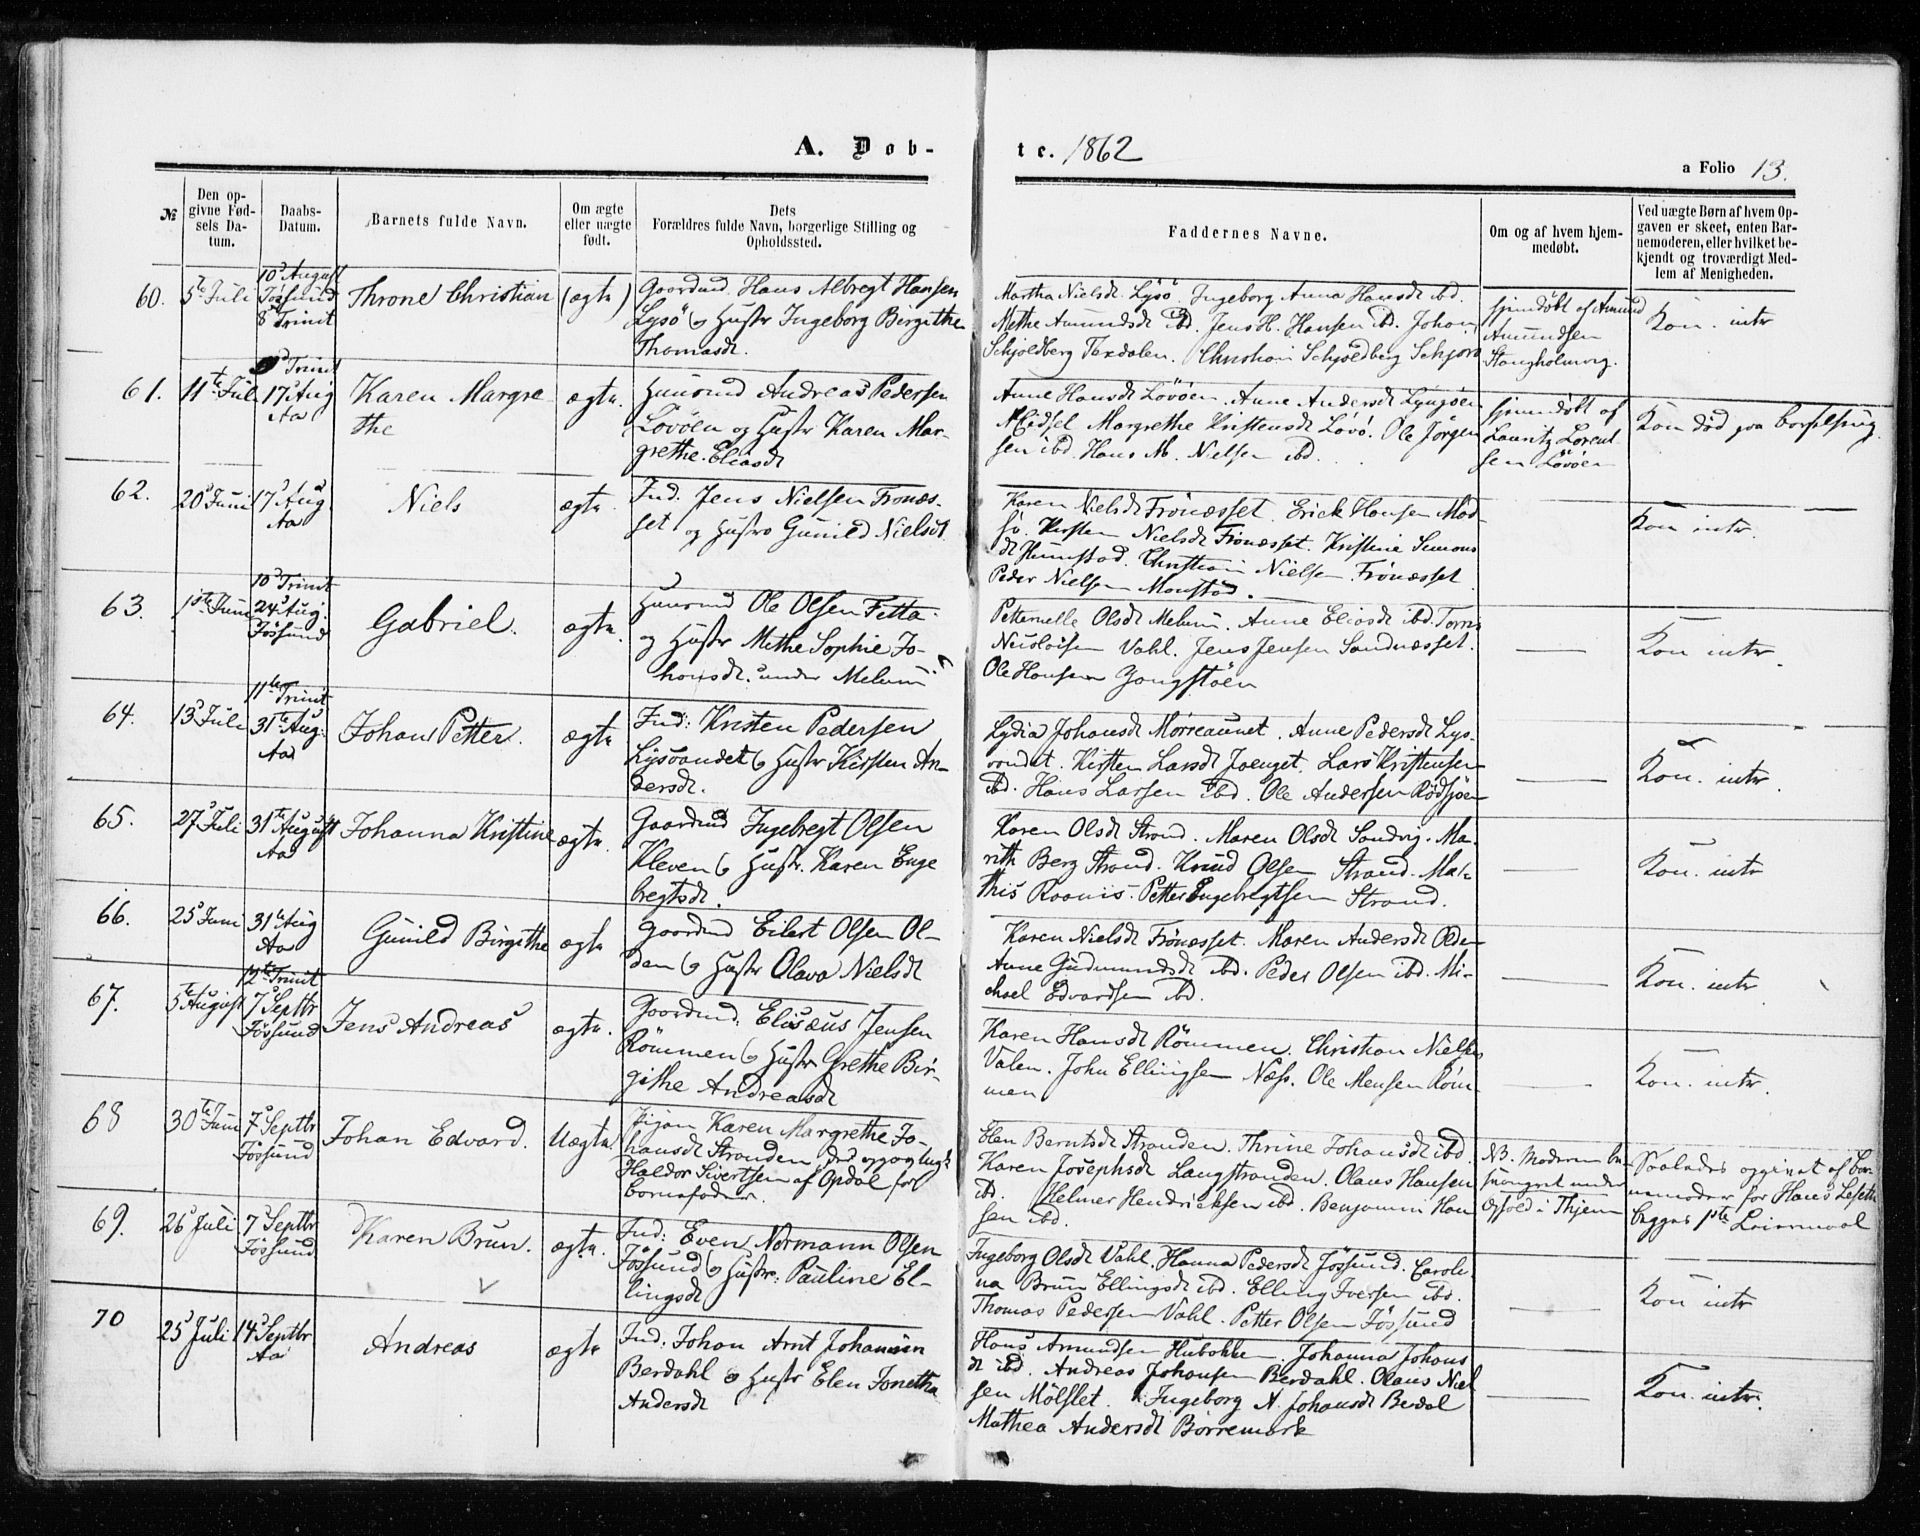 A. Døb-
te. 1862
a Folio 13.
№
Den op-
givne Fød-
sels Da-
tum.
Daabs-
Datum.
Barnets fulde Navn.
Om ægte
eller uægte
født.
Dets
Forældres fulde Navn, borgerlige Stilling og
Opholdssted.
Faddernes Navne.
Om og af hvem hjem-
medøbt.
Ved uægte Børn af hvem Op-
gaven er skeet, enten Bar-
nemoderen, eller hvilket be-
kjendt og troværdigt Med-
lem af Menigheden.
60.
5te Juli
10d August
Jøssund
8 Trinit
Throne Christian
(ægte)
Gaardmd Hans Albregt Hansen
Lysö og Hustr Ingeborg Bergithe
Thomasdt.
Martha Nielsdt Lysö. Ingeborg Anna Hansdt ibd.
Methe Amundsdt ibd. Jens H. Hansen ibd. Johan
Schjoldberg Taxdalen. Christian Schjoldberg
hjemdöbt af Amund
Amundsen
Kon. intr
61.
11te Juli
Trinit
17d Aug
Aa
Karen Margre-
the
ægte.
Huusmd Andreas Pedersen
Lövöen og Hustr Karen Mar-
grethe Eliasdt
Anne Hansdt Lövöen. Anne Andersdt Lyngöen
Margrethe Kristensdt Lövö. Ole Jørgen
sen ibd. Hans M. Nielsen ibd.
hjemdöbt af
Lauritz Lorent
sen Lövöen
Kon död paa
62.
20d Juni
17d Aug
Aa
Niels
ægte.
Ind. Jens Nielsen Frönæs-
set og Hustro Gunild Nielsdt.
Karen Nielsdt Frönæsset. Erick Hansen Mad-
sö. Kirsten Nielsdt Frönæsset. Kristine Simons
dt Humstad. Christian Nielsen Frönæsset.
Peder Nielsen Monstad.
Kon intr
63.
1ste Juni
10d Trinit
24d Aug.
Jössund
Gabriel.
ægte.
Huusmd Ole Olsen Fetta
og Hustr Methe Sophie Jo-
hansdt. under Melum
Petternelle Olsdt Melum. Anne Eliasdt ibd. Torris
Nicolaisen Vahl. Jens Jensen Sandnæsset.
Ole Hansen
Kon intr.
64.
13d Juli
11te Trinit
31te Aug.
Aa
Johan Petter.
ægte
Ind: Kristen Pedersen
Lysvandet og Hustr Kirsten An-
dersdt.
Lydia Johansdt Mørreaunet. Anne Pedersdt Lys-
vandet. Kirsten Larsdt Joenget. Lars Kristensen
ibd. Hans Larsen ibd. Ole Andersen Rödsjöen
Kon. intr
65.
27d Juli
31te August
Aa
Johanna Kristine
ægte.
Gaardmd Ingebregt Olsen
Kleven og Hustr. Karen Enge
bregtsdt.
Karen Olsdt Strand. Maren Olsdt Sandvig. Ma-
rith Berg Strand. Knud Olsen Strand. Ma-
this Petter Engebregtsen Strand.
Kon. intr
66.
25d Juni
31te Aug
Aa
Gunild Birgithe
ægte
Gaardmd Eilert Olsen Ol-
den og Hustr Olava Nielsdt
Karen Nielsdt Frönæsset. Maren Andersdt Olden
Anne Gudmundsdt ibd. Peder Olsen ibd. Mi-
chael Edvardsen ibd.
Kon. intr
67.
5te August
12te Trinit
7d Septbr
Jössund
Jens Andreas
ægte.
Gaardmd: Elisæus Jensen
Römmen og Hustr Grethe Bir-
githe Andreasdt
Karen Hansdt Römmen. Christian Nielsen
Valen. John Ellingsen Næss. Ole Mensen Röm
men
Kon. intr.
68
30te Juni
7d Septbr
Jössund
Johan Edvard.
Uægte.
Pigen Karen Margrethe Jo-
hansdt Stranden,
Haldor Sivertsen af Opdal for
barnefader.
Elen Berntsdt Stranden. Thrine Johansdt ibd.
Karen Josephsdt Langstranden. Olaus Hansen
ibd. Helmer Hendricksen ibd. Benjamin Han
sen ibd.
NB. Moderen be-
svangret under
Ophold i
Saaledes opgivet af bar-
nemoder for Hans
begges 1ste Leiermaal
69.
26d Juli
7d Septbr
Jössund
Karen Brun.
ægte.
Ind: Even Normann Olsen
Jössund og Hustr: Pauline El-
lingsdt
Ingeborg Olsdt Vahl. Hanna Pedersdt Jössund. Caroli-
na Brun Ellingsdt ibd. Elling Iversen ibd.
Thomas Pedersen Vahl. Petter Olsen Jössund
Kon intr
70
25d Juli
14d Septbr
Aa
Andreas
ægte
Ind: Johan Arnt Johansen
Berdahl og Hustr Elen Jonetha
Andersdt
Hans Amundsen Hubakken. Johanna Johans
dt ibd. Andreas Johansen Berdahl. Olaus Niel
sen Mölslet. Ingeborg A. Johansdt Berdal
Mathea Andersdt Börremark
Kon. intr.